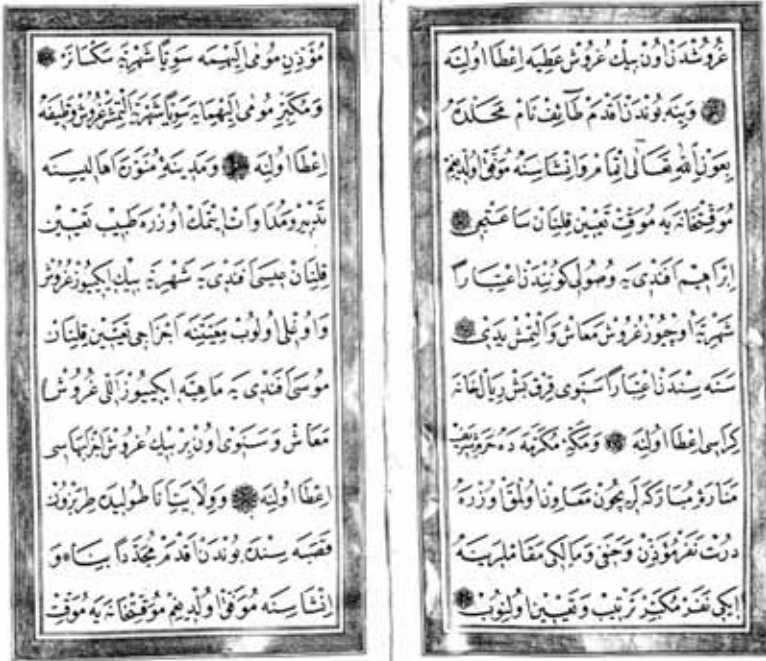 غروشدن اون بیك غروش عطیه اعطا اولنه
وینه بوندن اقدم طائف نام محلده
بعون الله تعالی اتمام و انشاسنه موفق اولدیغم
موقتخانه یه موقت تعیین قلنان ساعتجی
ابراهیم افندی یه وصولی كونندن اعتبارا
شهریه اوچیوز غروش معاش و التمش یدی
سنه سندن اعتبارا سنوی قرق بش ریال خانه
كراسی اعطا اولنه ومكهٔ مكرمه ده حرم شریف
مناره مباركه لریچون معاون اولمق اوزره
درت نفر مؤذن و حنفی و مالكی مقاملرینه
ایكی نفر مكبر ترتیب و تعیین اولنوب
مؤذن مومی الیهمه سویا شهریه سكسانر
ومكبر مومی الیهمایه سویا شهریه التمشر غروش وظیفه
اعطا اولنه ومدینهٔ منوره اهالیسنه
تدبیر و مداوات ایتمك اوزره طبیب تعیین
قلنان عیسی افندی یه شهریه بیك ایكیوز غروش
واوغلی اولوب معیتنه اجزاجی تعیین قلنان
موسی افندی یه ماهیه ایكیوز اللی غروش
معاش و سنوی اون بر بیك غروش اجزا بهاسی
اعطا اولنه وولایت اناطولیده طربزون
قصبه سنده بوندن اقدم مجددا بناء و
انشاسنه موفق اولدیغم موقتخانه یه موقت